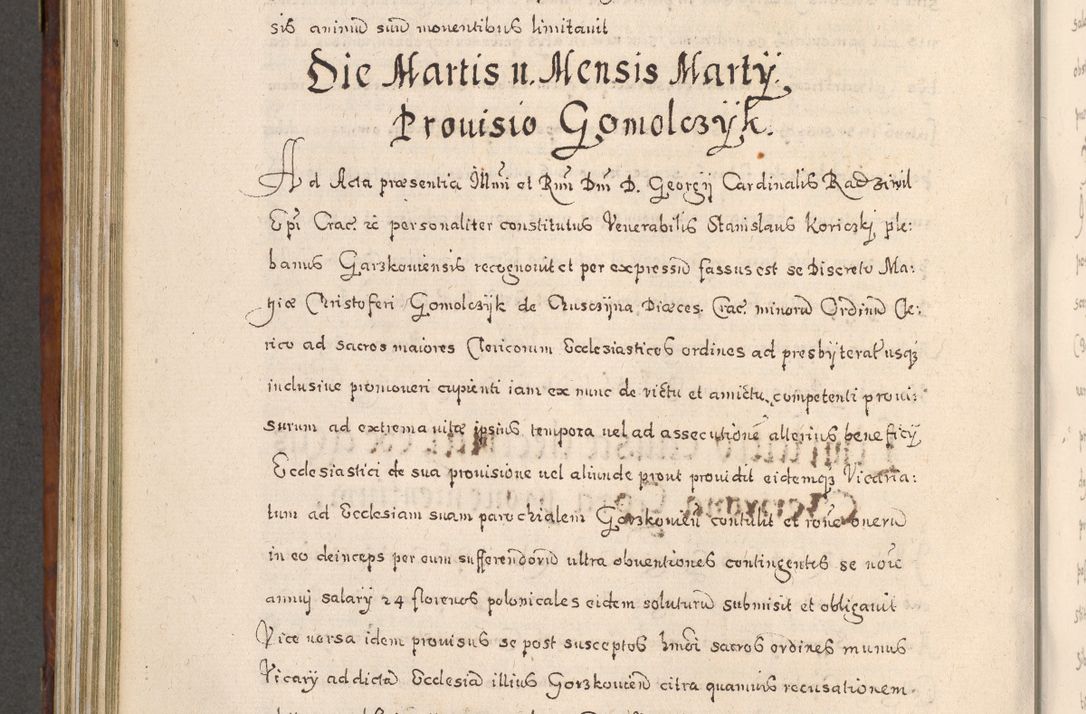 sis animũ suũ mouentibus limitauit
Die Martis 11. Mensis Martÿ.
Prouisio Gomolczÿk.
Ad Acta præsentia Illmi et Rmi Dni D. Georgÿ Cardinalis Radziwil
Epi Crac. etc personaliter constitutus Venerabilis Stanislaus Koriczkj ple:
banus Garzkouiensis recognouit et per expressũ fassus est se Discreto Ma:
giæ Christoferi Gomolczÿk de Chusczÿna Diæces. Crac. minorũ Ordinũ Cle:
rico ad sacros maiores Clericorum Ecclesiasticos ordines ad presbÿteratusqz
inclusiue promoueri cupienti iam ex nunc de victu et amictu competenti proui:
surum ad extrema uitæ ipsius tempora uel ad assecutionẽ alterius beneficÿ
Ecclesiastici de sua prouisione uel aliunde prout prouidit eidemqz Vicaria:
tum ad Ecclesiam suam parochialem Gorzkouieñ contulit et rone onerũ
in eo deinceps per eum sufferendorũ ultra obuentiones contingentes se noie
annuj salarÿ 24 florenos polonicales eidem soluturũ submisit et obligauit
Vice uersa idem prouisus se post susceptos hmoi sacros ordines munus
Vicarÿ ad dictã Ecclesiã illius Gorzkouieñ citra quamuis recusationem